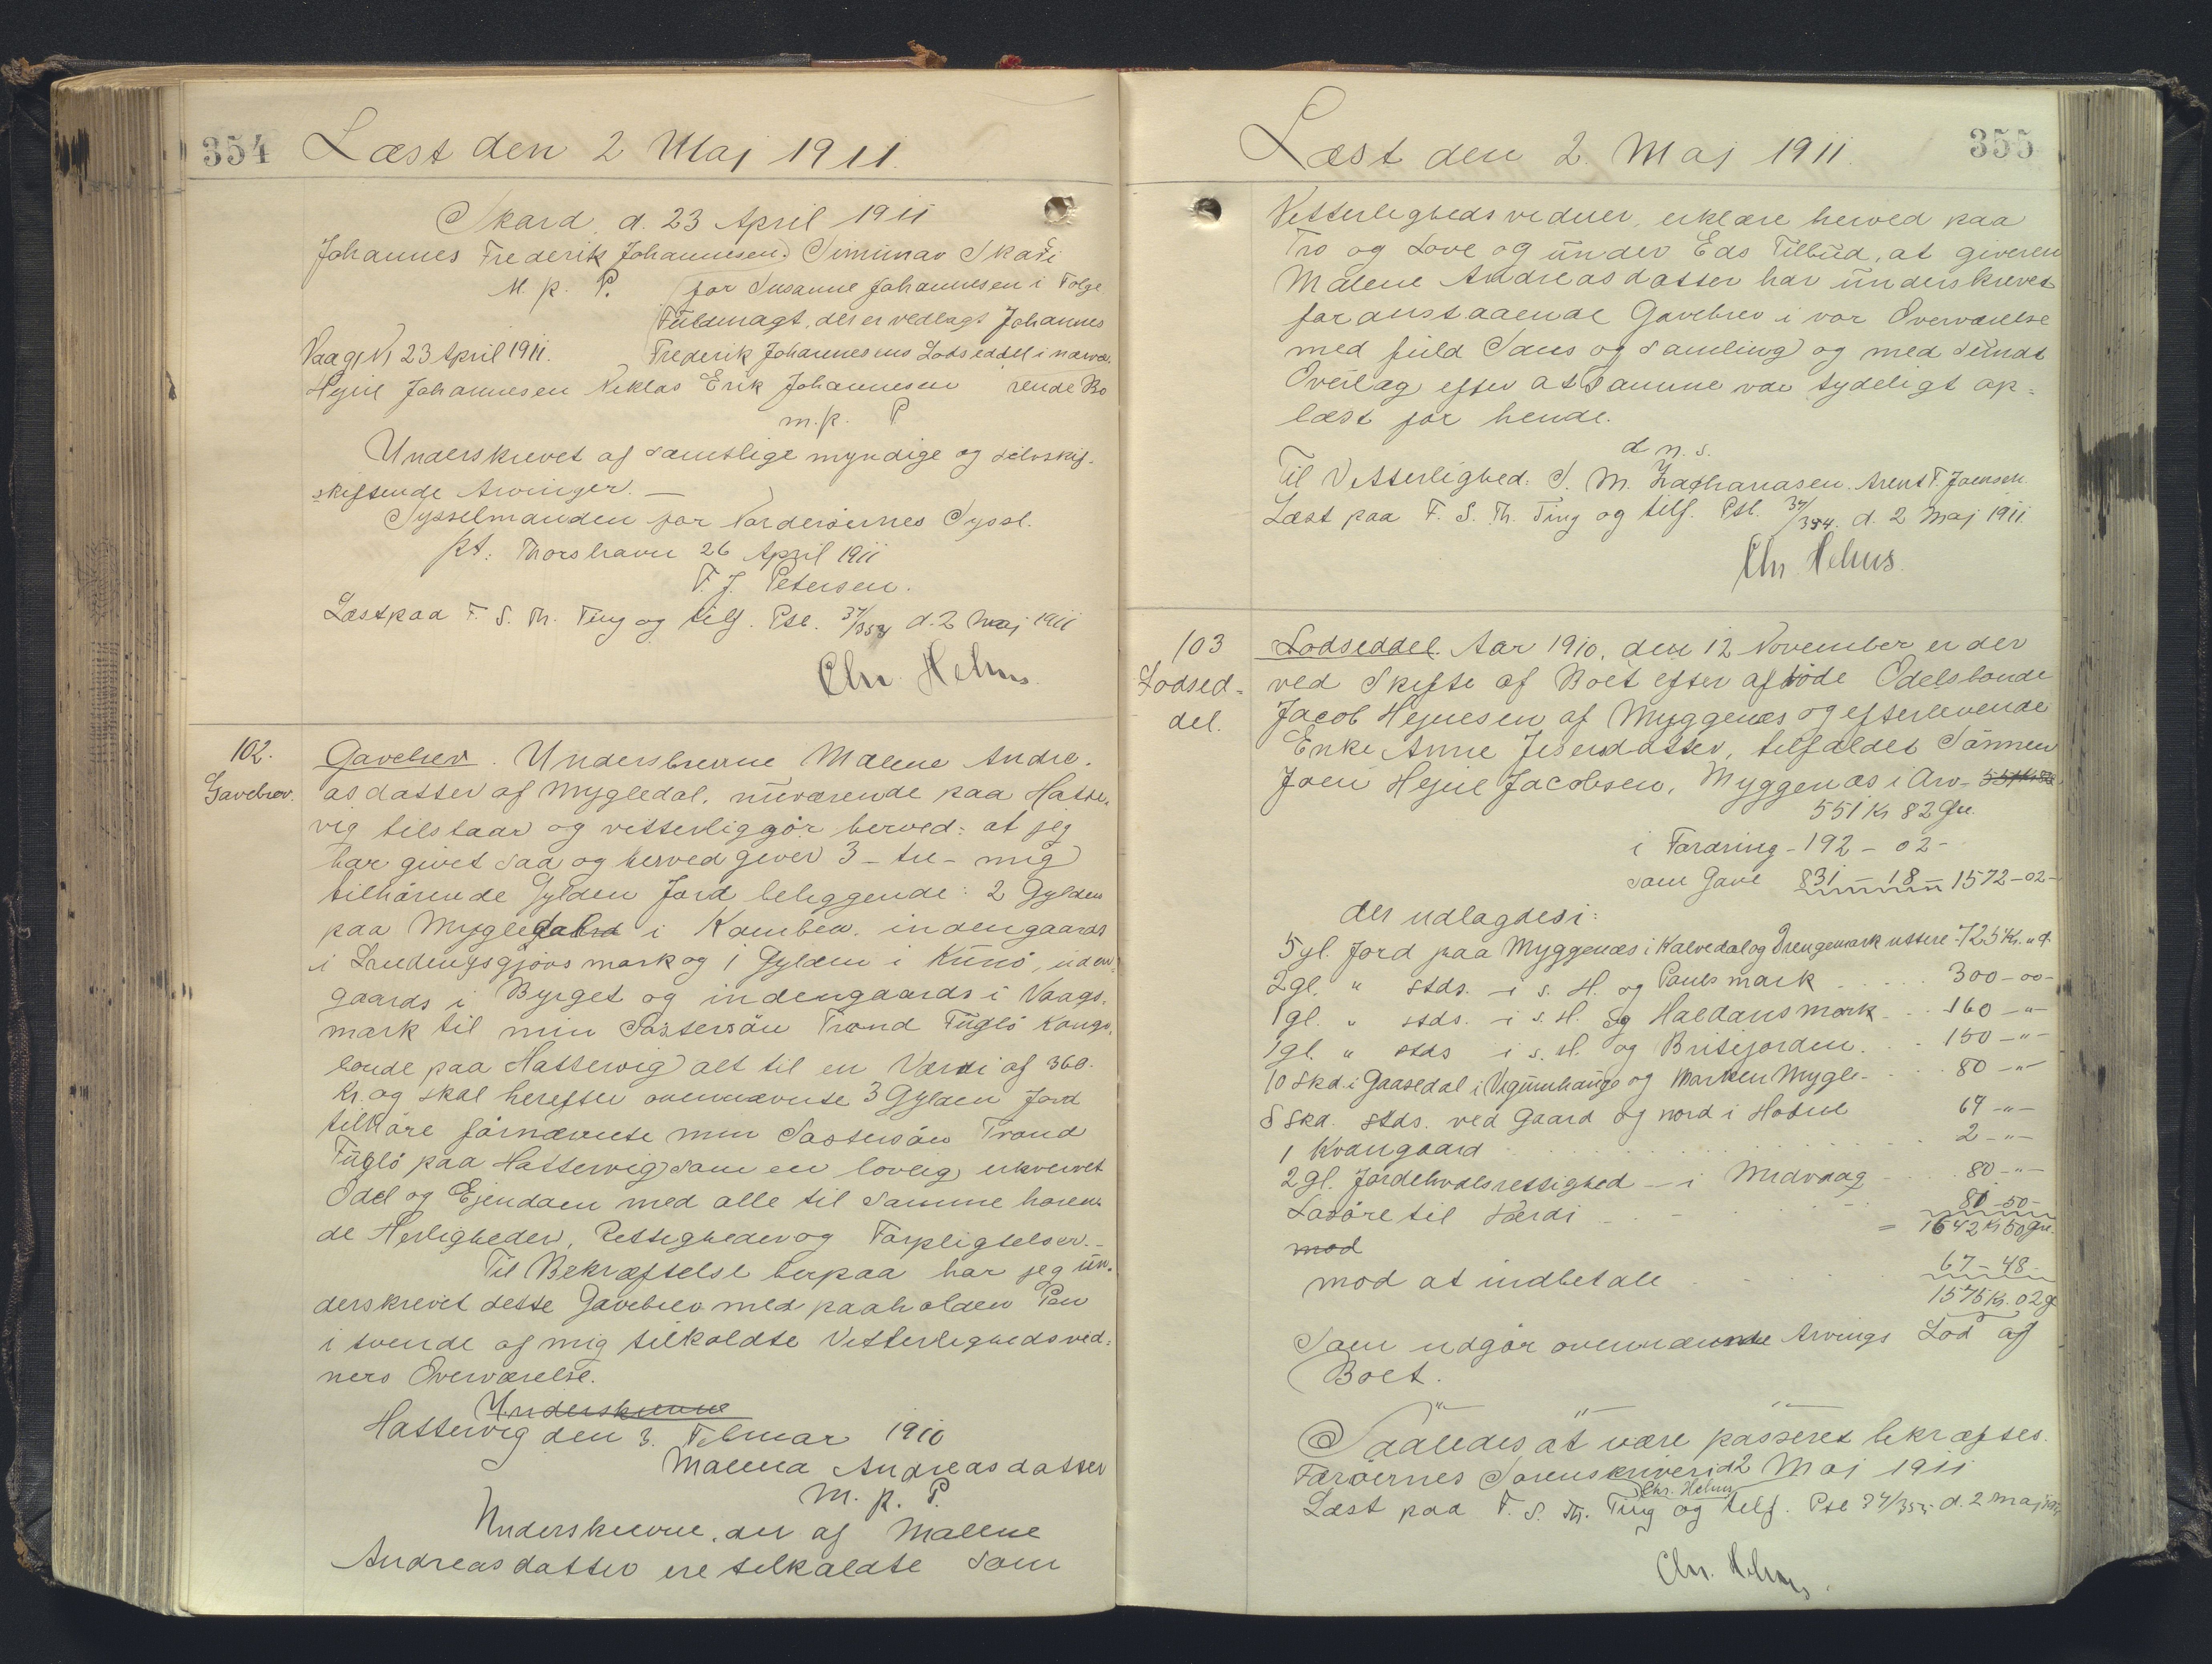 354 Læst den 2 Maj 1911.
Skard, d. 23 April 1911
Johannes Frederik Johannesen. Simunar Skardi
M. p. P. for Susanne Johannesen i Følge
Fuldmagt, der er vedlagt Johannes
Vaag, 23 April 1911. Frederik Johannesens Lodseddel i nærvæ-
Hejne Johannesen Niklas Erik Johannesen rende Bo
m. p. P
Underskrevet af samtlige myndige og selvskif-
skiftende Arvinger. —
Sysselmanden for Norderøernes Syssl.
pt. Thorshavn 26 April 1911
F. J. Petersen.
Læst paa F. S. Th. Ting og tilf. Psl. 34/354 d. 2 Maj 1911
Chr. Helms.
102.
Gavebrev.
Gavebrev. Underskrevne Malene Andre-
asdatter af Mygledal, nuværende paa Hatte-
vig tilstaar og vitterliggør herved: at jeg
har givet saa og herved giver 3 - tre - mig
tilhørende Gylden Jord beliggende: 2 Gylden
paa Mygledal i Kamben, indengaards
i mark og 1 Gylden i Kunø, uden-
gaards i Byrget og indengaards i Vaags-
mark til min Søstersøn Trond Fuglø Kongs-
bonde paa Hattervig alt til en Værdi af 360.
Kr. og skal herefter ovennævnte 3 Gylden Jord
tilhøre førnævnte min Søstersøn Trond
Fuglø paa Hattervig som en lovlig erhvervet
Odel og Ejendom med alle til samme høren-
de Herligheder, Rettigheder og Forpligtelser.-
Til Bekræftelse herpaa har jeg un-
derskrevet dette Gavebrev med paaholden Pen
i tvende af mig tilkaldte Vitterlighedsvid-
ners Overværelse.
Underskrevne
Hattervig den 3. Februar 1910
Malena Andreasdatter
M. p. P.
Underskrevne, der af Malene
Andreasdatter ere tilkaldte som
Læst den 2. Maj 1911. 355
Vitterlighedsvidner, erklære herved paa
Tro og Love og under Eds Tilbud, at giveren
Malene Andreasdatter har underskrevet
foranstaaende Gavebrev i vor Overværelse
med fuld Sans og Samling og med sundt
Overlæg efter at samme var tydeligt op-
læst for hende.
d. n. s.
Til Vitterlighed: S. M. Zachariasen. Arent F. Joensen.
Læst paa F. S. Th. Ting og tilf. Psl. 34/354. d. 2 Maj 1911.
Chr. Helms.
103
Lodsed-
del.
Lodseddel. Aar 1910, den 12 November er der
ved Skifte af Boet efter afdøde Odelsbonde
Jacob Hejnesen af Myggenæs og efterlevende
Enke Anne Jesersdatter, tilfaldet Sønnen
Joen Hejne Jacobsen, Myggenæs i Arv - 551 Kr 82
551 Kr 82 Øre.
i Fordring - 192 - 02 -
som Gave 831 - 18 = 1572 - 02 -
der udlagdes i:
5 gl. Jord paa Myggenæs i Kalvedal og Drengemark uttere - 725 Kr. " ø.
2 gl. " stds. - i s. H. og Pauls mark 300 - 00 -
1 gl. " stds. - i s. H. og Haldans mark 160 - " -
1 gl. " stds i s. H. og Britejorden. 150 - " -
10 Skd. i Gaasedal i og Marken Mygle- 80 - " -
8 Skd. stds. ved Gaard og nord i 64 - " -
1 Kvangaard 2 - " -
2 gl. Jordehvalsrettighed - i Midvaag 80 - " -
Løsøre til Værdi 81 - 50 -
mod = 1642 Kr 50 Øre.
mod at indbetale 67 - 48 -
1575 Kr. 02 ø
Som udgør ovennævnte Arvings Lod af
Boet.
" — " — " —
Saaledes at være passeret bekræftes.
Færøernes Sorenskriveri d 2 Maj 1911
Chr. Helms
Læst paa F. S. Th. Ting og tilf. Psl 34/355 d. 2 Maj 1911
Chr. Helms.